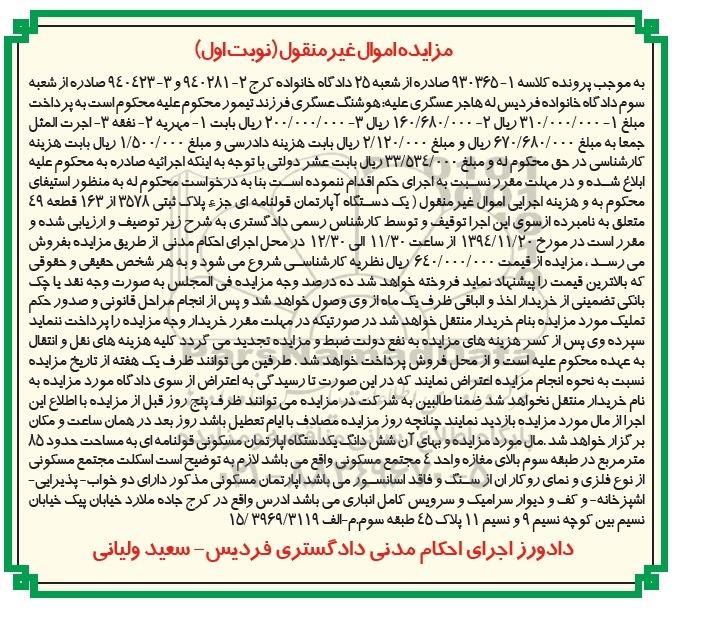 مزایده اموال غیر منقول (نوبت اول)
به موجب پرونده کلاسه ۱- ۹۳۰۳۶۵ صادره از شعبه ۲۵ دادگاه خانواده کرج ۲- ۹۴۰۲۸۱ و ۳- ۹۴۰۴۲۳ صادره از شعبه
سوم دادگاه خانواده فردیس له هاجر عسگری علیه: هوشنگ عسگری فرزند تیمور محکوم علیه محکوم است به پرداخت
مبلغ ۱- ۳۱۰/۰۰۰/۰۰۰ ریال ۲- ۱۶۰/۶۸۰/۰۰۰ ریال ۳- ۲۰۰/۰۰۰/۰۰۰ ریال بابت ۱- مهریه ۲- نفقه ۳- اجرت المثل
جمعا به مبلغ ۶۷۰/۶۸۰/۰۰۰ ریال و مبلغ ۲/۱۲۰/۰۰۰ ریال بابت هزینه دادرسی و مبلغ ۱/۵۰۰/۰۰۰ ریال بابت هزینه
کارشناسی در حق محکوم له و مبلغ ۳۳/۵۳۴/۰۰۰ ریال بابت عشر دولتی با توجه به اینکه اجرائیه صادره به محکوم علیه
ابلاغ شده و در مهلت مقرر نسبت به اجرای حکم اقدام ننموده است بنا به درخواست محکوم له به منظور استیفای
محکوم به و هزینه اجرایی اموال غیر منقول ( یک دستگاه آپارتمان قولنامه ای جزء پلاک ثبتی ۳۵۷۸ از ۱۶۳ قطعه ۴۹
متعلق به نامبرده از سوی این اجرا توقیف و توسط کارشناس رسمی دادگستری به شرح زیر توصیف و ارزیابی شده و
مقرر است در مورخ ۱۳۹۴/۱۱/۲۰ از ساعت ۱۱/۳۰ الی ۱۲/۳۰ در محل اجرای احکام مدنی از طریق مزایده بفروش
می رسد ، مزایده از قیمت ۶۴۰/۰۰۰/۰۰۰ ریال نظریه کارشناسی شروع می شود و به هر شخص حقیقی و حقوقی
که بالاترین قیمت را پیشنهاد نماید فروخته خواهد شد ده درصد وجه مزایده فی المجلس به صورت وجه نقد یا چک
بانکی تضمینی از خریدار اخذ و الباقی ظرف یک ماه از وی وصول خواهد شد و پس از انجام مراحل قانونی و صدور حکم
تملیک مورد مزایده بنام خریدار منتقل خواهد شد در صورتیکه در مهلت مقرر خریدار وجه مزایده را پرداخت ننماید
سپرده وی پس از کسر هزینه های مزایده به نفع دولت ضبط و مزایده تجدید می گردد کلیه هزینه های نقل و انتقال
به عهده محکوم علیه است و از محل فروش پرداخت خواهد شد . طرفین می توانند ظرف یک هفته از تاریخ مزایده
نسبت به نحوه انجام مزایده اعتراض نمایند که در این صورت تا رسیدگی به اعتراض از سوی دادگاه مورد مزایده به
نام خریدار منتقل نخواهد شد ضمنا طالبین به شرکت در مزایده می توانند ظرف پنج روز قبل از مزایده با اطلاع این
اجرا از مال مورد مزایده بازدید نمایند چنانچه روز مزایده مصادف با ایام تعطیل باشد روز بعد در همان ساعت و مکان
برگزار خواهد شد .مال مورد مزایده و بهای آن شش دانگ یکدستگاه آپارتمان مسکونی قولنامه ای به مساحت حدود ۸۵
مترمربع در طبقه سوم بالای مغازه واحد ۴ مجتمع مسکونی واقع می باشد لازم به توضیح است اسکلت مجتمع مسکونی
از نوع فلزی و نمای روکار آن از سنگ و فاقد آسانسور می باشد آپارتمان مسکونی مذکور دارای دو خواب- پذیرایی-
آشپزخانه- و کف و دیوار سرامیک و سرویس کامل انباری می باشد ادرس واقع در کرج جاده ملارد خیابان پیک خیابان
نسیم بین کوچه نسیم ۹ و نسیم ۱۱ پلاک ۴۵ طبقه سوم.م-الف ۳۹۶۹/۳۱۱۹ /۱۵
دادورز اجرای احکام مدنی دادگستری فردیس- سعید ولیانی